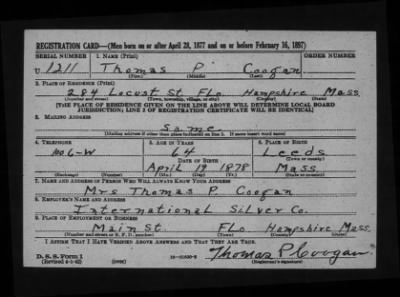 REGISTRATION CARD—(Men born on or after April 28, 1877 and on or before February 16, 1897)
SERIAL NUMBER 1. NAME (Print) ORDER NUMBER
U 1211 Thomas P Coogan
(First) (Middle) (Last)
2. PLACE OF RESIDENCE (Print)
284 Locust St. Flo. Hampshire Mass.
(Number and street) (Town, township, village, or city) (County) (State)
[THE PLACE OF RESIDENCE GIVEN ON THE LINE ABOVE WILL DETERMINE LOCAL BOARD
JURISDICTION; LINE 2 OF REGISTRATION CERTIFICATE WILL BE IDENTICAL]
3. MAILING ADDRESS
same
(Mailing address if other than place indicated on line 2. If same insert word same)
4. TELEPHONE 5. AGE IN YEARS 6. PLACE OF BIRTH
64 Leeds
DATE OF BIRTH (Town or county)
April 19 1878 Mass
(Exchange) (Number) (Mo.) (Day) (Yr.) (State or country)
7. NAME AND ADDRESS OF PERSON WHO WILL ALWAYS KNOW YOUR ADDRESS
Mrs Thomas P. Coogan
8. EMPLOYER'S NAME AND ADDRESS
International Silver Co.
9. PLACE OF EMPLOYMENT OR BUSINESS
Main St. Flo Hampshire Mass.
(Number and street or R. F. D. number) (Town) (County) (State)
I AFFIRM THAT I HAVE VERIFIED ABOVE ANSWERS AND THAT THEY ARE TRUE.
D. S. S. Form 1
(Revised 4-1-42) (over) 16—21630-2 Thomas P Coogan
(Registrant's signature)